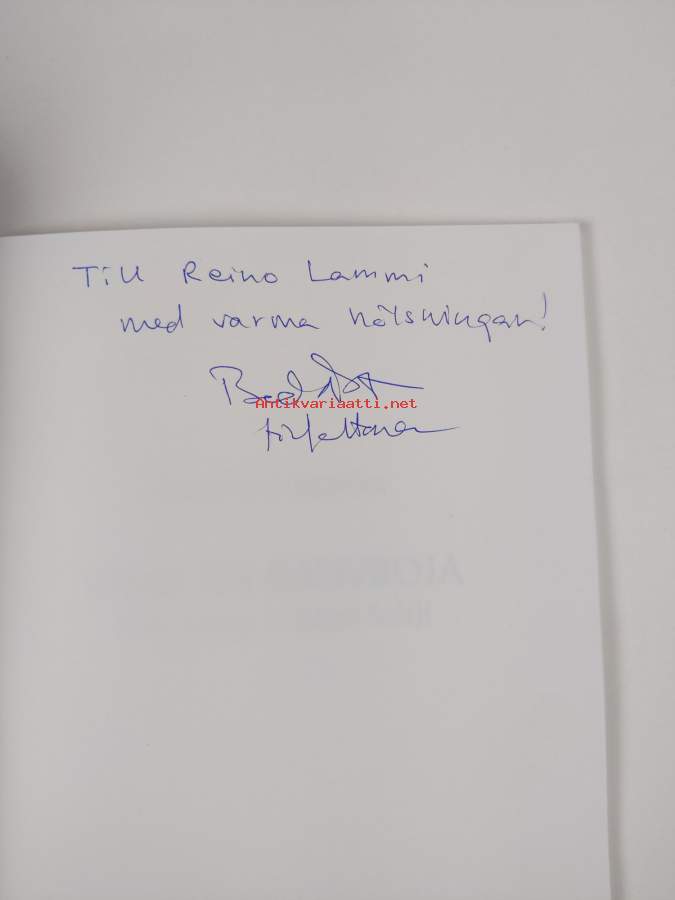 Till Reino Lammi
med varma hälsningar!
Antikvariaatti.net
författaren